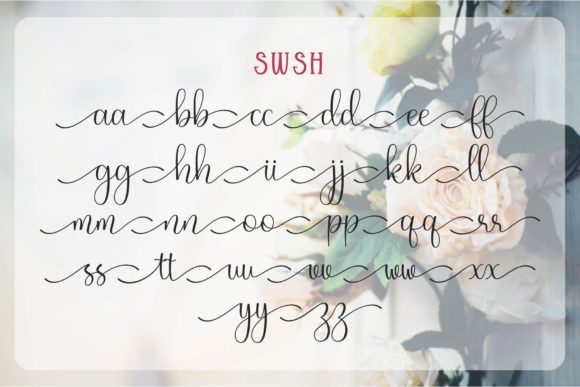 SWSH
aa bb cc dd ee ff
gg hh ii jj kk ll
mm nn oo pp qq rr
ss tt uu vv ww xx
yy zz